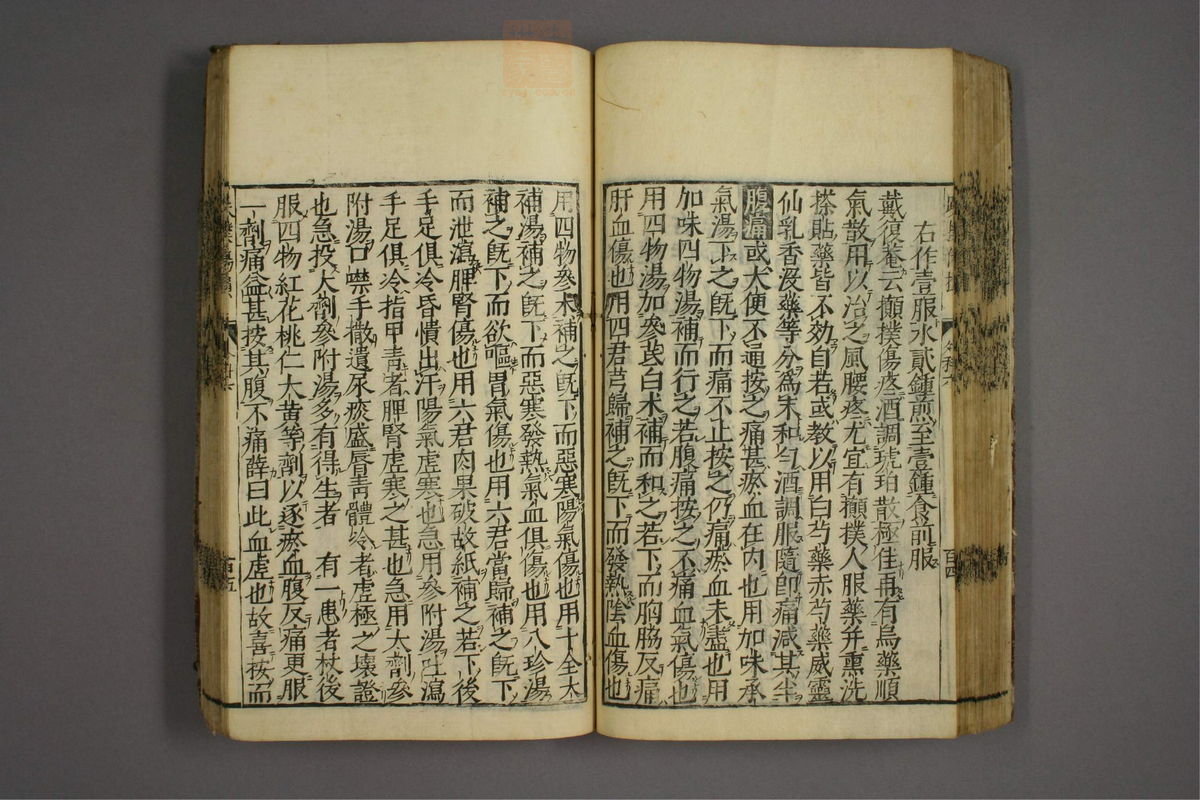 右作壹服水貳鍾煎至壹鍾食前服
戴復菴云攧撲傷疼酒調琥珀散極佳再有烏藥順
氣散用以治之風腰疼尤宜有攧撲人服藥并熏洗
搽貼藥皆不効自若或教以用白芍藥赤芍藥威靈
仙乳香沒藥等分為末和勻酒調服隨卽痛減其半
腹痛或大便不通按之痛甚瘀血在内也用加味承
氣湯下之旣下而痛不止按之仍痛瘀血未盡也用
加味四物湯補而行之若腹痛按之不痛血氣傷也
用四物湯加參芪白朮補而和之若下而胸脇反痛
肝血傷也用四君芎歸補之旣下而發熱陰血傷也
用四物參朮補之旣下而惡寒陽氣傷也用十全大
補湯補之旣下而惡寒發熱氣血俱傷也用八珍湯
補之旣下而欲嘔胃氣傷也用六君當歸補之旣下
而泄瀉脾腎傷也用六君肉果破故紙補之若下後
手足俱冷昏憒出汗陽氣虛寒也急用參附湯吐瀉
手足俱冷指甲青者脾腎虛寒之甚也急用大劑參
附湯口噤手撒遺尿痰盛唇青體冷者虛極之壞證
也急投大劑參附湯多有得生者　有一患者杖後
服四物紅花桃仁大黃等劑以逐瘀血腹反痛更服
一劑痛益甚按其腹不痛薛曰此血虛也故喜按而